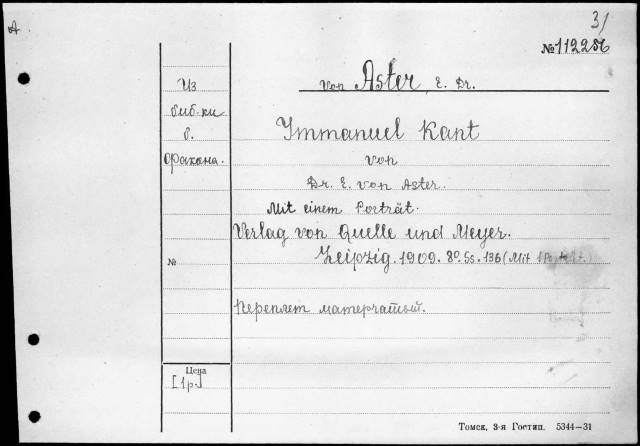 A
31
№112286
Из
биб-ки
б.
Фракана.
von Aster, E. Dr.
Immanuel Kant
von
Dr. E. von Aster.
Mit einem Porträt.
Verlag von Quelle und Meyer.
Leipzig. 1909. 8º. Ss. 136 (Mit 1
№
Переплет матерчатый.
Цена
[1р.]
Томск, 3-я Гостип. 5344—31